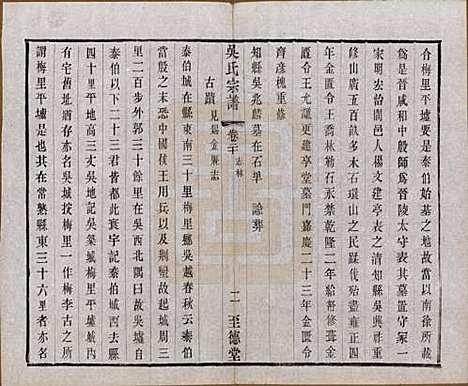 合梅里平墟要是泰伯始基之地故當以南徐所載
爲是晉咸和中殷師爲晉陵太守表其墓置守冢一
家明宏治十三年邑人楊文建亭表之縣吳興祚重
修山廣五百畝多水石環山之民蹂伐尤甚雍正四
年金匱令王喬林石禁永除乾隆二年給帑修葺金
匱令王允謙更建亭堂墓門嘉慶二十三年金匱令
齊彦槐重修
知縣吳兆麟墓在石埠 諭葬
古蹟 見錫金縣志
泰伯城在縣東南三十里梅里鄉吳越春秋云泰伯
殷之末恐中國侯王用兵以及荆蠻故起城周三
里二百步外郭三十餘里在吳西北隅曰故吳墟自
泰伯以下二十三君皆都此寰宇記泰伯城西去縣
四十里平地高三丈吳地記吳築城梅里平墟城內
有宅舊址猶存曰吳城按梅里一作梅李古之所
謂梅里平墟是也其在常熟縣東三十六里者亦名
吳氏宗譜 卷二十 志林 二 至德堂